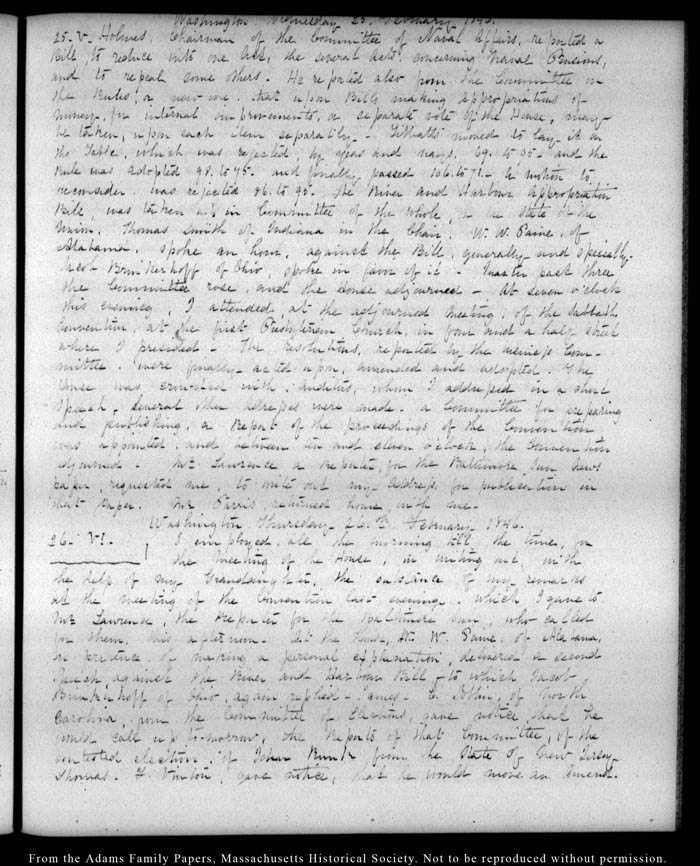 Washington Wednesday 25. February 1846.
25. V. Holmes, Chairman of the Committee of Naval Affairs, reported a
Bill to reduce into one Act, the several acts concerning Naval Pensions,
and to repeal some others. He reported also from the Committee on
the Rules, a new one, that upon Bills making appropriations of
money, for internal improvements, a separate vote of the House, may
be taken, upon each item separately. Tibbatts moved to lay it on
the Table, which was rejected, by yeas and nays. 69. to 95 - and the
Rule was adopted 98. to 75. and finally passed 106. to 71. - A motion to
reconsider was rejected 86. to 95. The River and Harbour appropriation
Bill, was taken up in Committee of the whole, on the State of the
Union. Thomas Smith of Indiana in the Chair. W. W. Paine, of
Alabama, spoke an hour, against the Bill, generally and specially.
Jacob Brinkerhoff of Ohio, spoke in favor of it - Quarter past three
the Committee rose, and the House adjourned - At seven o'clock
this evening, I attended, at the adjourned meeting, of the Sabbath
Convention, at the first Presbyterian Church, in four and a half street
where I presided - The Resolutions, reported by the business Com-
mittee, were finally acted upon, amended and adopted. The
House was crowded with auditors, whom I addressed in a short
speech, several other addresses were made. a Committee for preparing
and publishing, a Report of the proceedings of the Convention
was appointed, and between ten and eleven o'clock, the Convention
adjourned - Mr Lawrence a Reporter, for the Baltimore Sun news
paper, requested me, to write out my address for publication in
that paper. Mr Parris returned home with me.
Washington Thursday 26. February 1846.
26. VI. I employed, all the morning till the time, for
the meeting of the House, in writing out, with
the help of my Grandaughter, the substance of my remarks
at the meeting of the Convention last evening, which I gave to
Mr Lawrence, the Reporter for the Baltimore Sun, who called
for them, this afternoon. At the House, W. W. Paine, of Alabama,
on pretence of making a personal explanation, delivered a second
speech, against the River and Harbour Bill - to which Jacob
Brinkerhoff of Ohio again replied - James C. Dobbin, of North
Carolina, from the Committee of Elections, gave notice that he
would call up to-morrow, the Reports of that Committee, of the
contested election of John Runk, from the State of New Jersey
Thomas. F. Vinton, gave notice, that he would move an amend-
From the Adams Family Papers, Massachusetts Historical Society. Not to be reproduced without permission.